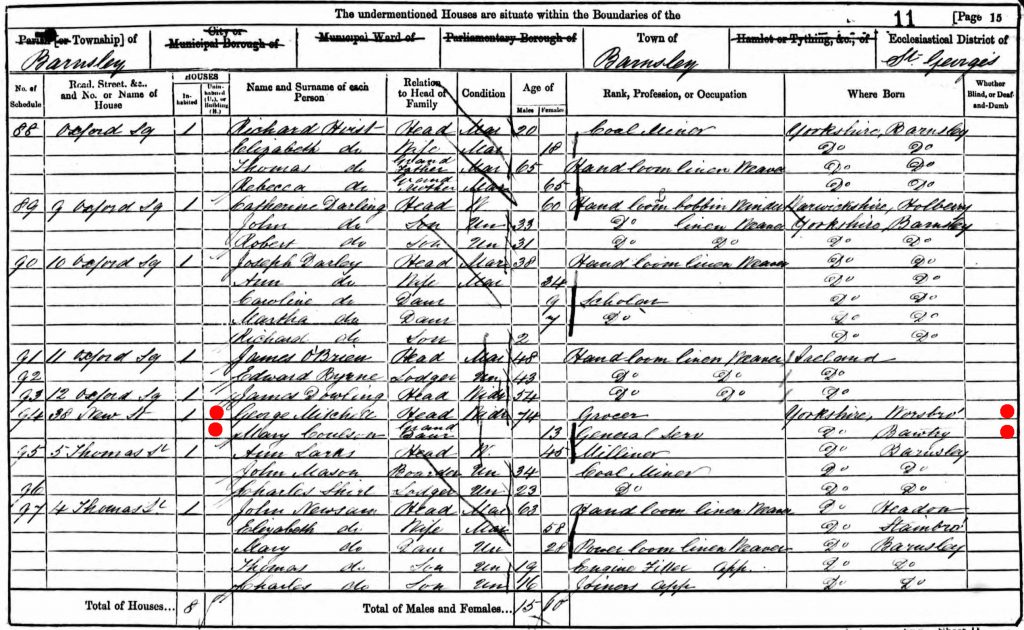 The undermentioned Houses are situate within the Boundaries of the 11 [Page 15
Parish [or Township] of City or Municipal Borough of Municipal Ward of Parliamentary Borough of Town of Hamlet or Tything, &c., of Ecclesiastical District of
Barnsley Barnsley St Georges
No. of Schedule Road, Street, &c., and No. or Name of House HOUSES Inhabited Uninhabited (U.), or Building (B.) Name and Surname of each Person Relation to Head of Family Condition Age of Males Females Rank, Profession, or Occupation Where Born Whether Blind, or Deaf-and-Dumb
88 Oxford Sq 1 Richard Hirst Head Mar 20 Coal Miner Yorkshire, Barnsley
Elizabeth do Wife Mar 18 Do Do
Thomas do Grand Father Mar 65 Hand loom linen Weaver Do Do
Rebecca do Grand Mother Mar 65 Do Do
89 9 Oxford Sq 1 Catherine Darling Head W 60 Hand loom bobbin Winder
John do Son Un 33 Do linen Weaver Yorkshire, Barnsley
Robert do Son Un 31 Do Do Do Do
90 10 Oxford Sq 1 Joseph Darley Head Mar 38 Hand loom linen Weaver Do Do
Ann do Wife Mar 34 Do Do
Caroline do Daur 9 Scholar Do Do
Martha do Daur 7 Do Do Do
Richard do Son 2 Do Do
91 11 Oxford Sq 1 James O'Brien Head Mar 48 Hand loom linen Weaver Ireland
92 Edward Byrne Lodger Un 43 Do Do Do
93 12 Oxford Sq 1 James Dowling Head Widr 54 Do Do Do
94 38 New St 1 George Mitchell Head Widr 74 Grocer Yorkshire, Worsbro'
Mary Coulson Grand Daur 13 General Serv Do Bawtry
95 5 Thomas St 1 Ann Head W 45 Milliner Do Barnsley
John Mason Boarder Un 34 Coal Miner Do Do
96 Charles Lodger Un 23 Do Do Do
97 4 Thomas St 1 John Newsam Head Mar 63 Hand loom linen Weaver Do
Elizabeth do Wife Mar 58 Do Stainbro'
Mary do Daur Un 28 Power loom linen Weaver Do Barnsley
Thomas do Son Un 19 Engine Fitter App Do Do
Charles do Son Un 16 Joiners App Do Do
Total of Houses... 8 Total of Males and Females... 15 10